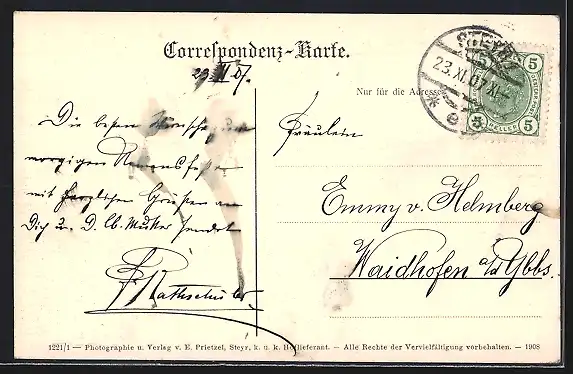 Correspondenz-Karte.
23. XI. 07.
Nur für die Adresse
STEYR
23.XI.07.XI
* e
5 5
5 HELLER 5
Die besten Wünsche zum
morgigen Namensfeste
mit herzlichen Grüßen an
Dich u. D. lb. Mutter sendet
Fräulein
Emmy v. Helmberg
Waidhofen a/d Ybbs.
1221/1 — Photographie u. Verlag v. E. Prietzel, Steyr, k. u. k. Hoflieferant. — Alle Rechte der Vervielfältigung vorbehalten. — 1908